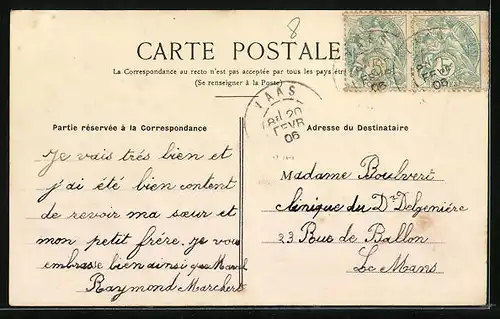 8
CARTE POSTALE
La Correspondance au recto n'est pas acceptée par tous les pays
(Se renseigner à la Poste)
VAAS
20
FEVR
06
Partie réservée à la Correspondance
Je vais très bien et
j'ai été bien content
de revoir ma sœur et
mon petit frére. Je vous
embrasse bien ainsi que Marcel
Raymond Marchert
Adresse du Destinataire
Madame Boulvert
clinique du Dr Delgeniére
23 Rue de Ballon
Le Mans